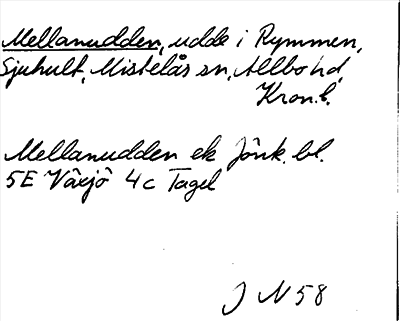 Mellanudden, udde i Rymmen,
Sjuhult, Mistelås sn, Allbo hd,
Kron. l.
Mellanudden ek Jönk. bl.
5E Växjö 4c Tagel
J N 58